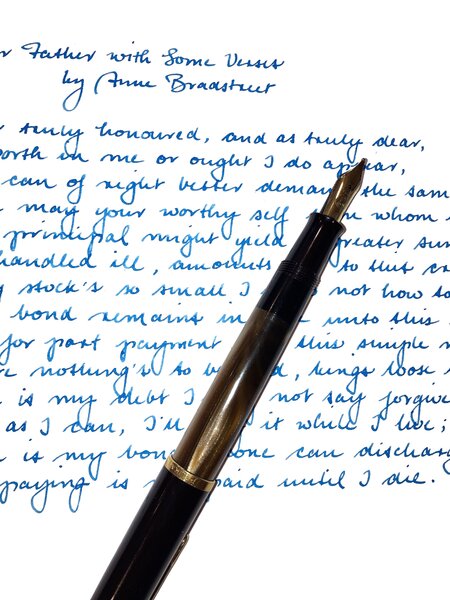 r Father with Some Verses
by Anne Bradstreet
truly honoured, and as truly dear,
orth in me or ought I do appear,
can of right better demand the sam
may your worthy self whom
principal might yield greater sum
handled ill, amounts to this cr
stock's so small I not how to
bond remains in unto this
for part payment this simple m
nothing's to loose
is my debt I not say forgive
as I can, I'll it while I live;
is my bond can discharg
paying is paid until I die.